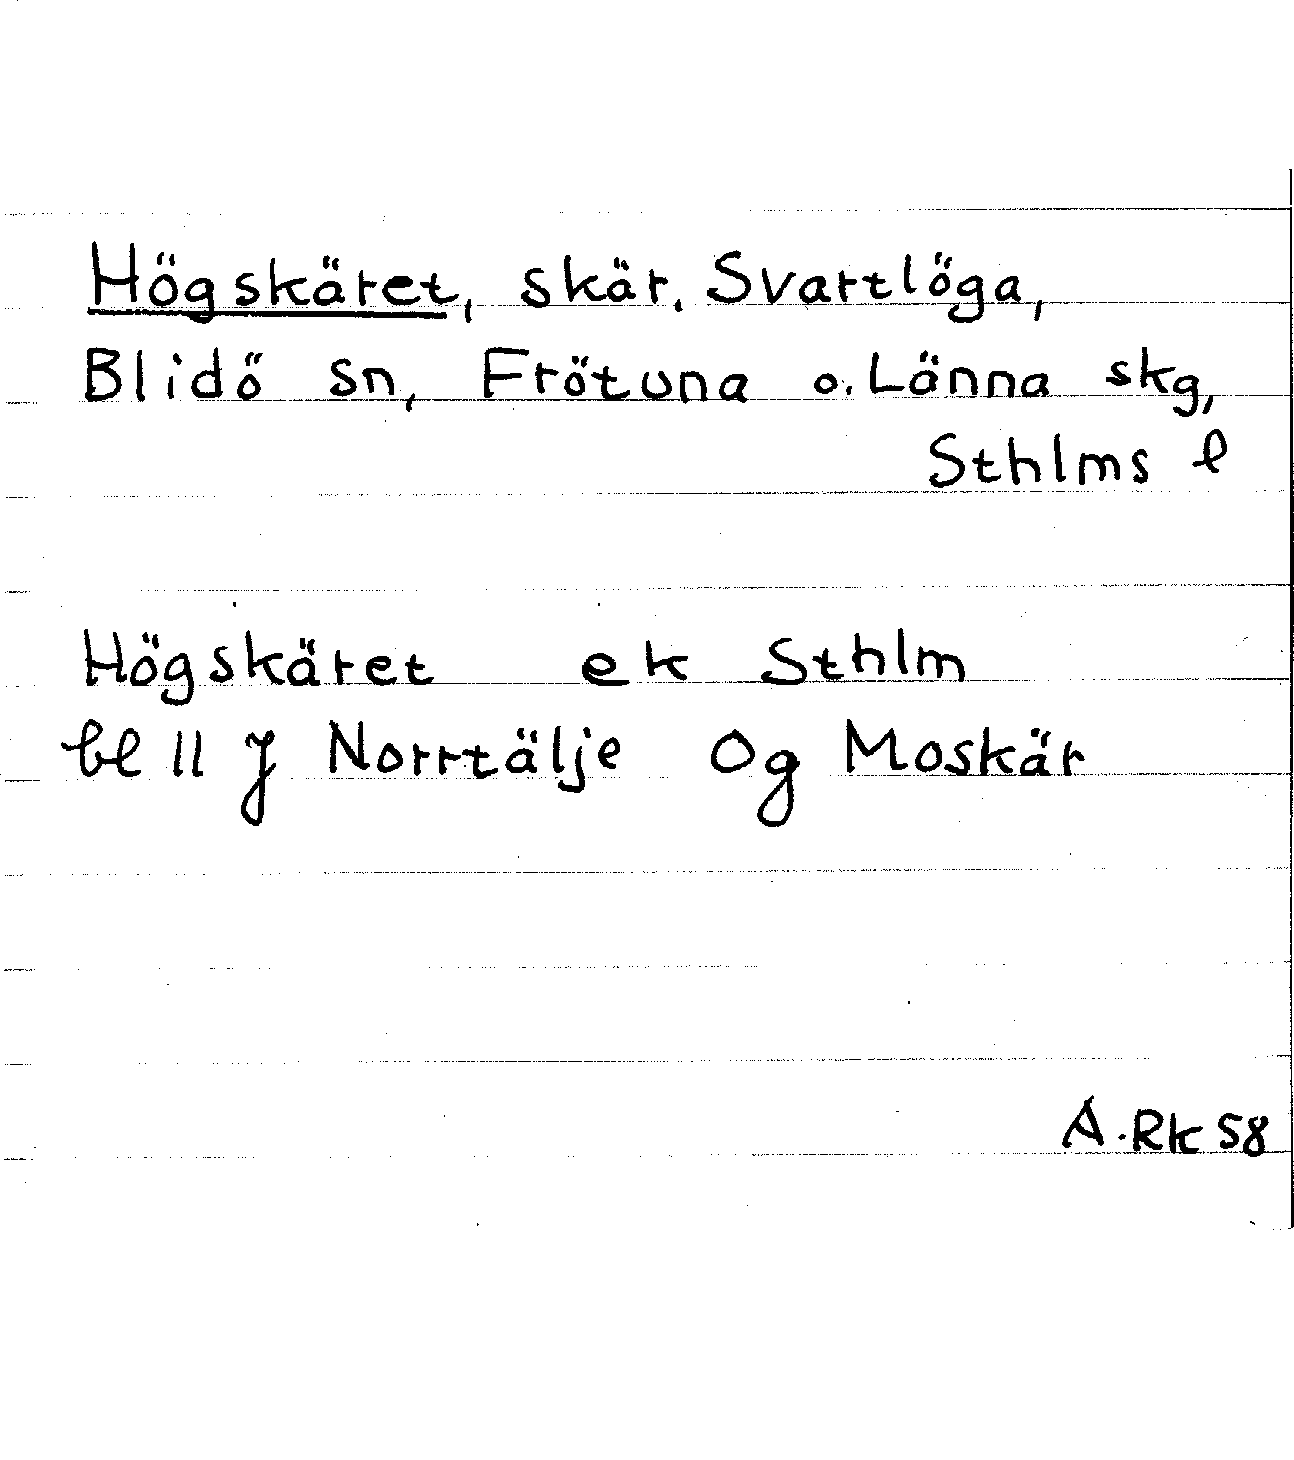 Högskäret, skär. Svartlöga,
Blidö sn, Frötuna o. Länna skg,
Sthlms l
Högskäret ek Sthlm
bl 11 J Norrtälje Og Moskär
A.Rk 58